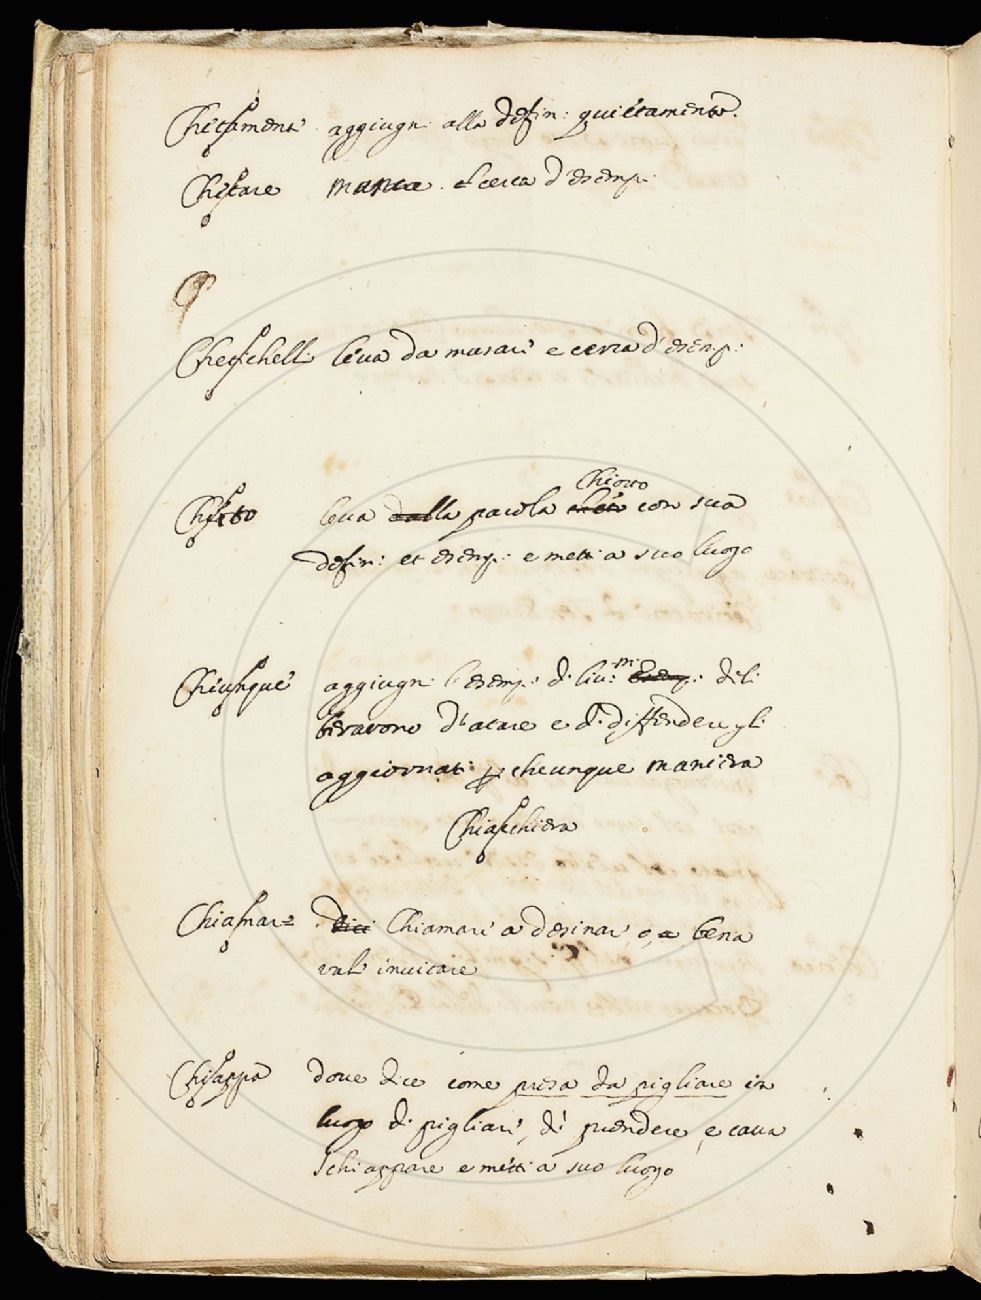 Chetament aggiugn: alla defin: quietamente.
Chetare manca et cerca d'esemp:
Chetichelli leva da musare e cerca d'esemp:
Chioto
Chieto leva dalla parola con sua
defin: et esemp: e metti a suo luogo
Chiunque aggiugn: l'esemp: di Liv: m: Esemp: deli
beravono d'atare e di diffendere gli
aggiornati p cheunque maniera
Chiaschiera
Chiamare Dici Chiamare a desinare, o, a cena
vale invitare
Chiappa dove dice come presa da pigliare in
luogo di pigliare, di' prendere, e cava
Schiappare e metti a suo luogo